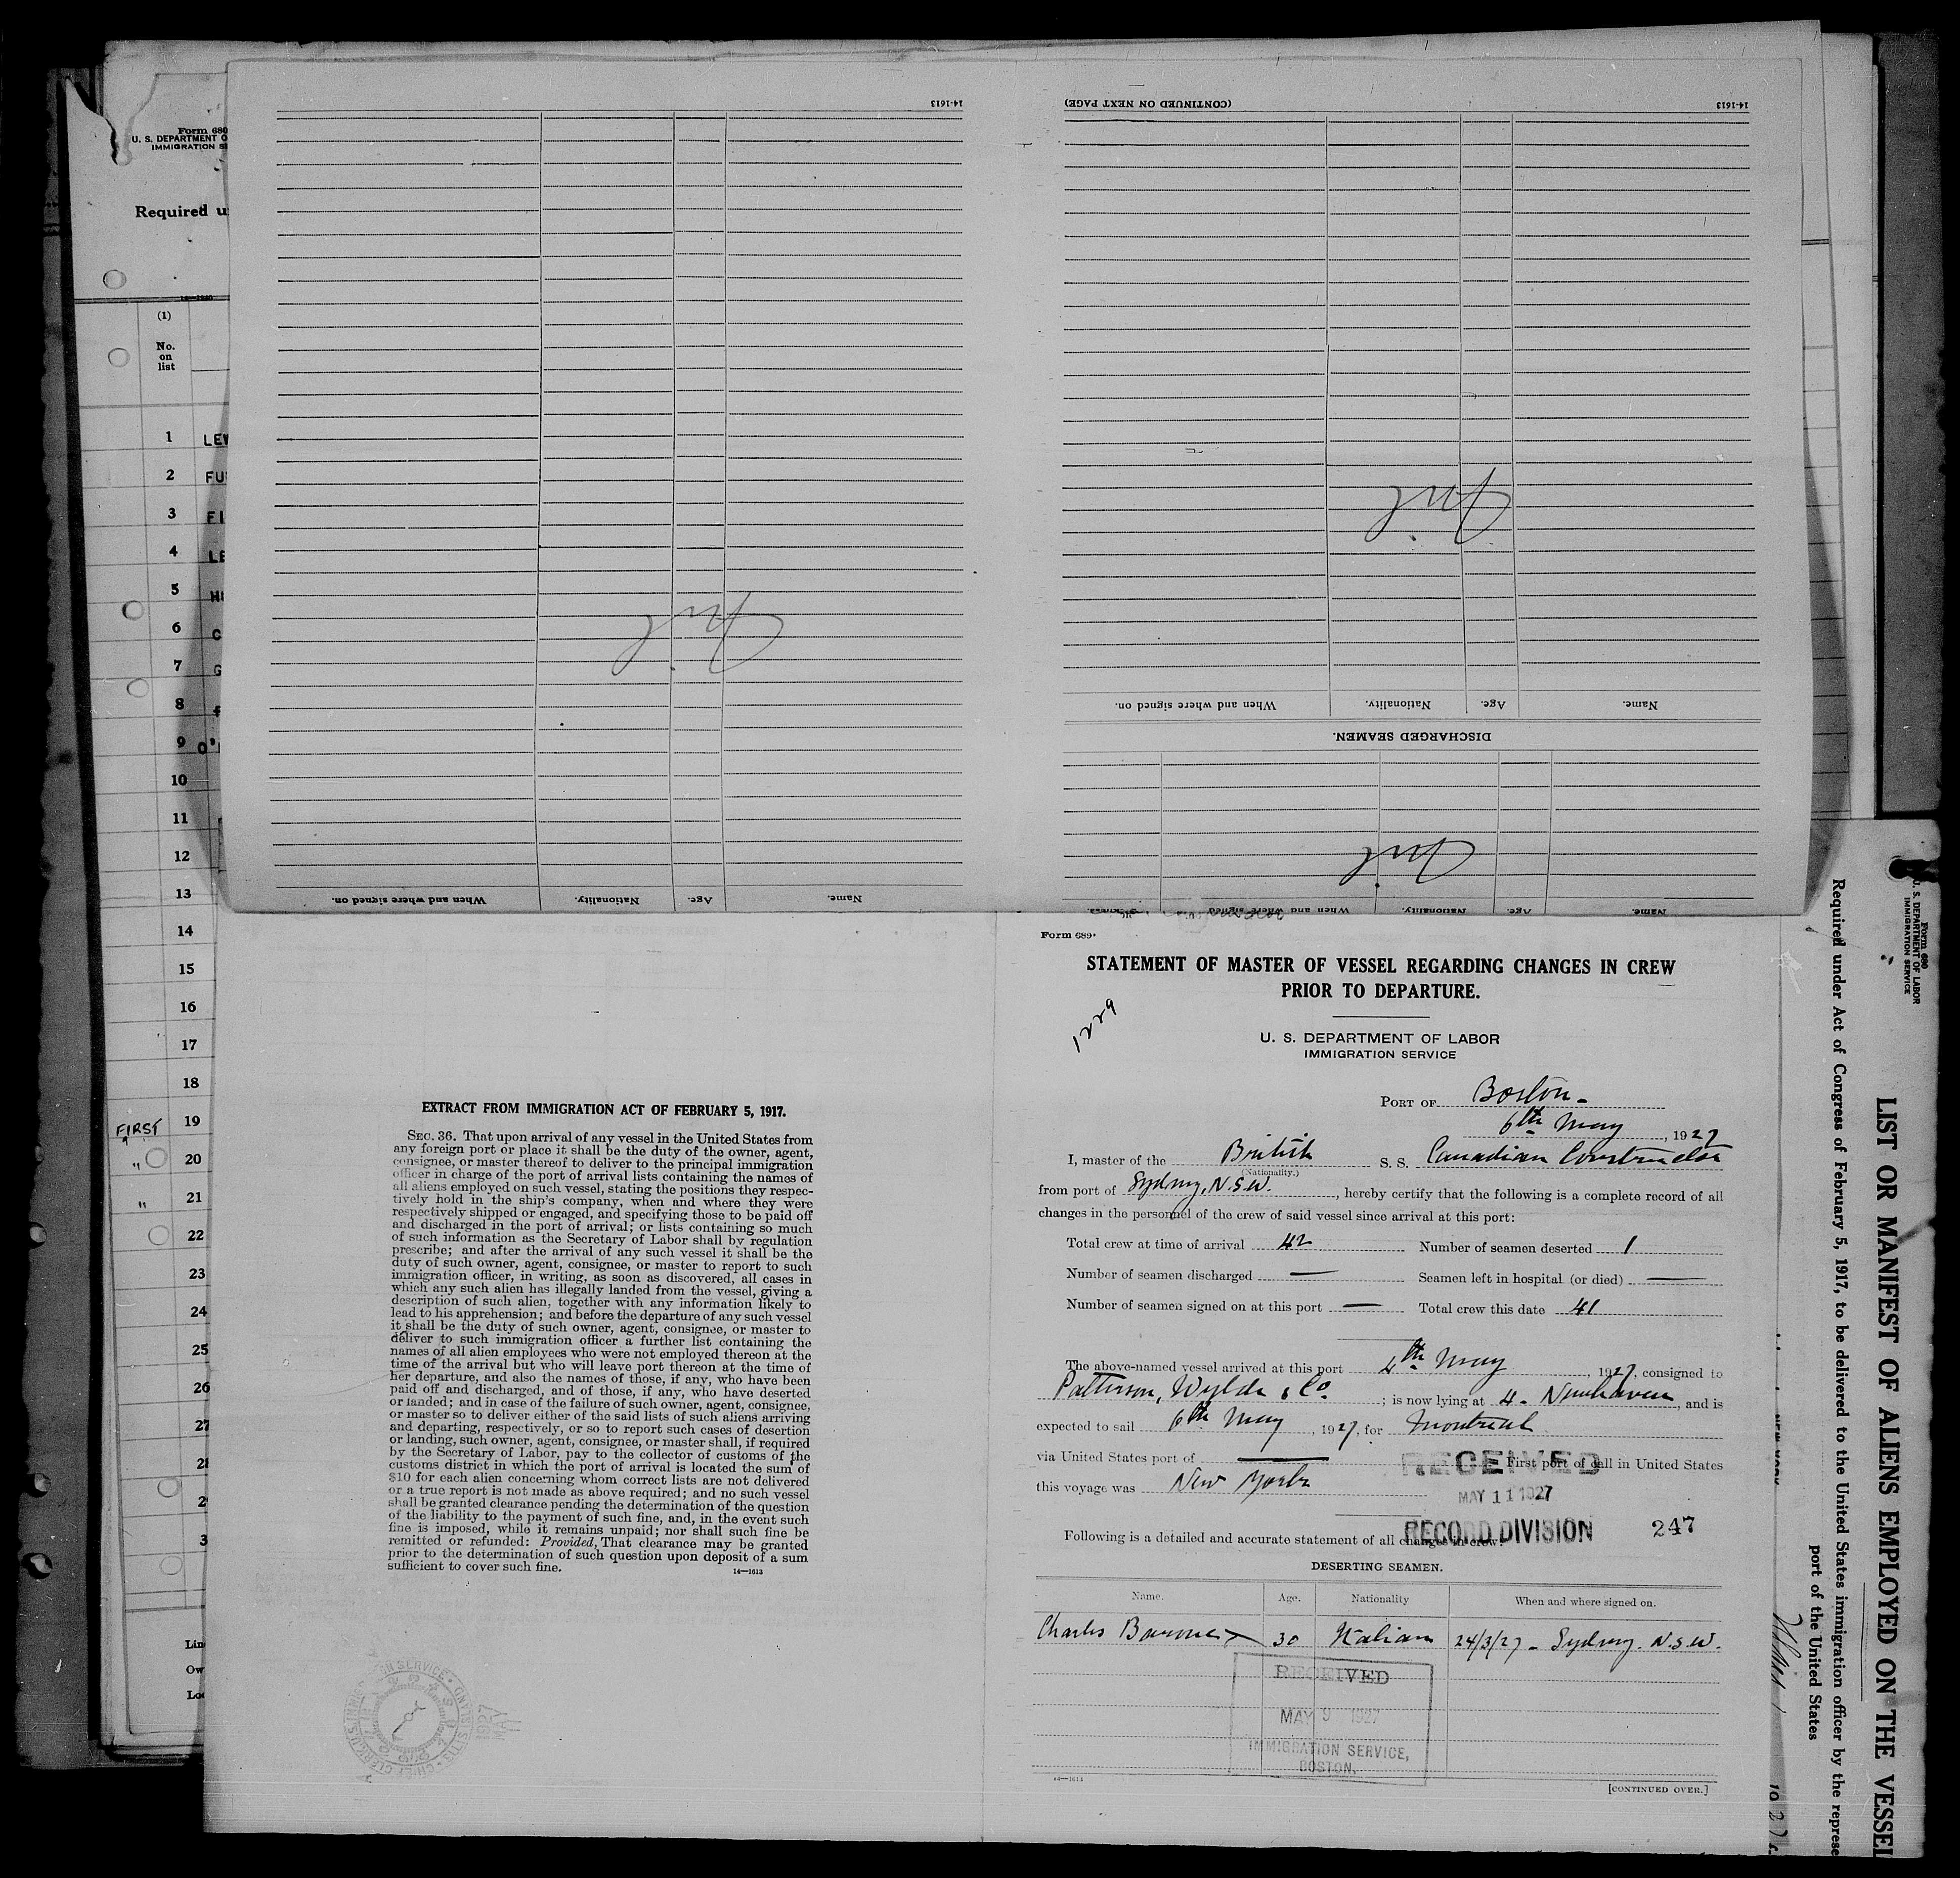 Form 680
U. S. DEPARTMENT O
IMMIGRATION S
Required u
(1)
No.
on
list
1 LEW
2 FU
3 FI
4 LE
5 H
6 C
7 G
8
9 O'
10
11
12
13
14
15
16
17
18
FIRST 19
" 20
" 21
22
23
24
25
26
27
28
2
3
Lin
Ow
Loc
14-1613
When and where signed on. Nationality. Age. Name.
Nil
(CONTINUED ON NEXT PAGE) 14-1613
Nil
When and where signed on. Nationality. Age. Name.
DISCHARGED SEAMEN.
Nil
When and where signed Nationality. Age. Name.
EXTRACT FROM IMMIGRATION ACT OF FEBRUARY 5, 1917.
SEC. 36. That upon arrival of any vessel in the United States from
any foreign port or place it shall be the duty of the owner, agent,
consignee, or master thereof to deliver to the principal immigration
officer in charge of the port of arrival lists containing the names of
all aliens employed on such vessel, stating the positions they respec-
tively hold in the ship's company, when and where they were
respectively shipped or engaged, and specifying those to be paid off
and discharged in the port of arrival; or lists containing so much
of such information as the Secretary of Labor shall by regulation
prescribe; and after the arrival of any such vessel it shall be the
duty of such owner, agent, consignee, or master to report to such
immigration officer, in writing, as soon as discovered, all cases in
which any such alien has illegally landed from the vessel, giving a
description of such alien, together with any information likely to
lead to his apprehension; and before the departure of any such vessel
it shall be the duty of such owner, agent, consignee, or master to
deliver to such immigration officer a further list containing the
names of all alien employees who were not employed thereon at the
time of the arrival but who will leave port thereon at the time of
her departure, and also the names of those, if any, who have been
paid off and discharged, and of those, if any, who have deserted
or landed; and in case of the failure of such owner, agent, consignee,
or master so to deliver either of the said lists of such aliens arriving
and departing, respectively, or so to report such cases of desertion
or landing, such owner, agent, consignee, or master shall, if required
by the Secretary of Labor, pay to the collector of customs of the
customs district in which the port of arrival is located the sum of
$10 for each alien concerning whom correct lists are not delivered
or a true report is not made as above required; and no such vessel
shall be granted clearance pending the determination of the question
of the liability to the payment of such fine, and, in the event such
fine is imposed, while it remains unpaid; nor shall such fine be
remitted or refunded: Provided, That clearance may be granted
prior to the determination of such question upon deposit of a sum
sufficient to cover such fine.
14—1613
Form 689
STATEMENT OF MASTER OF VESSEL REGARDING CHANGES IN CREW
PRIOR TO DEPARTURE.
1229
U. S. DEPARTMENT OF LABOR
IMMIGRATION SERVICE
PORT OF Boston
6th May, 1927
I, master of the British S. S. Canadian Constructor
(Nationality.)
from port of Sydney, N.S.W., hereby certify that the following is a complete record of all
changes in the personnel of the crew of said vessel since arrival at this port:
Total crew at time of arrival 42 Number of seamen deserted 1
Number of seamen discharged — Seamen left in hospital (or died) —
Number of seamen signed on at this port — Total crew this date 41
The above-named vessel arrived at this port 4th May, 1927, consigned to
Patterson, Wylde & Co. ; is now lying at 4. Newhaven, and is
expected to sail 6th May, 1927, for Montreal
via United States port of — First port of call in United States
this voyage was New York
RECEIVED
MAY 11 1927
RECORD DIVISION
247
Following is a detailed and accurate statement of all changes in crew:
DESERTING SEAMEN.
Name. Age. Nationality When and where signed on.
Charles 30 Italian 24/3/27 - Sydney. N.S.W.
RECEIVED
MAY 9 1927
IMMIGRATION SERVICE,
BOSTON.
14—1613
[CONTINUED OVER.]
Form 680
U. S. DEPARTMENT OF LABOR
IMMIGRATION SERVICE
LIST OR MANIFEST OF ALIENS EMPLOYED ON THE VESSEL
Required under Act of Congress of February 5, 1917, to be delivered to the United States immigration officer by the represe
port of the United States